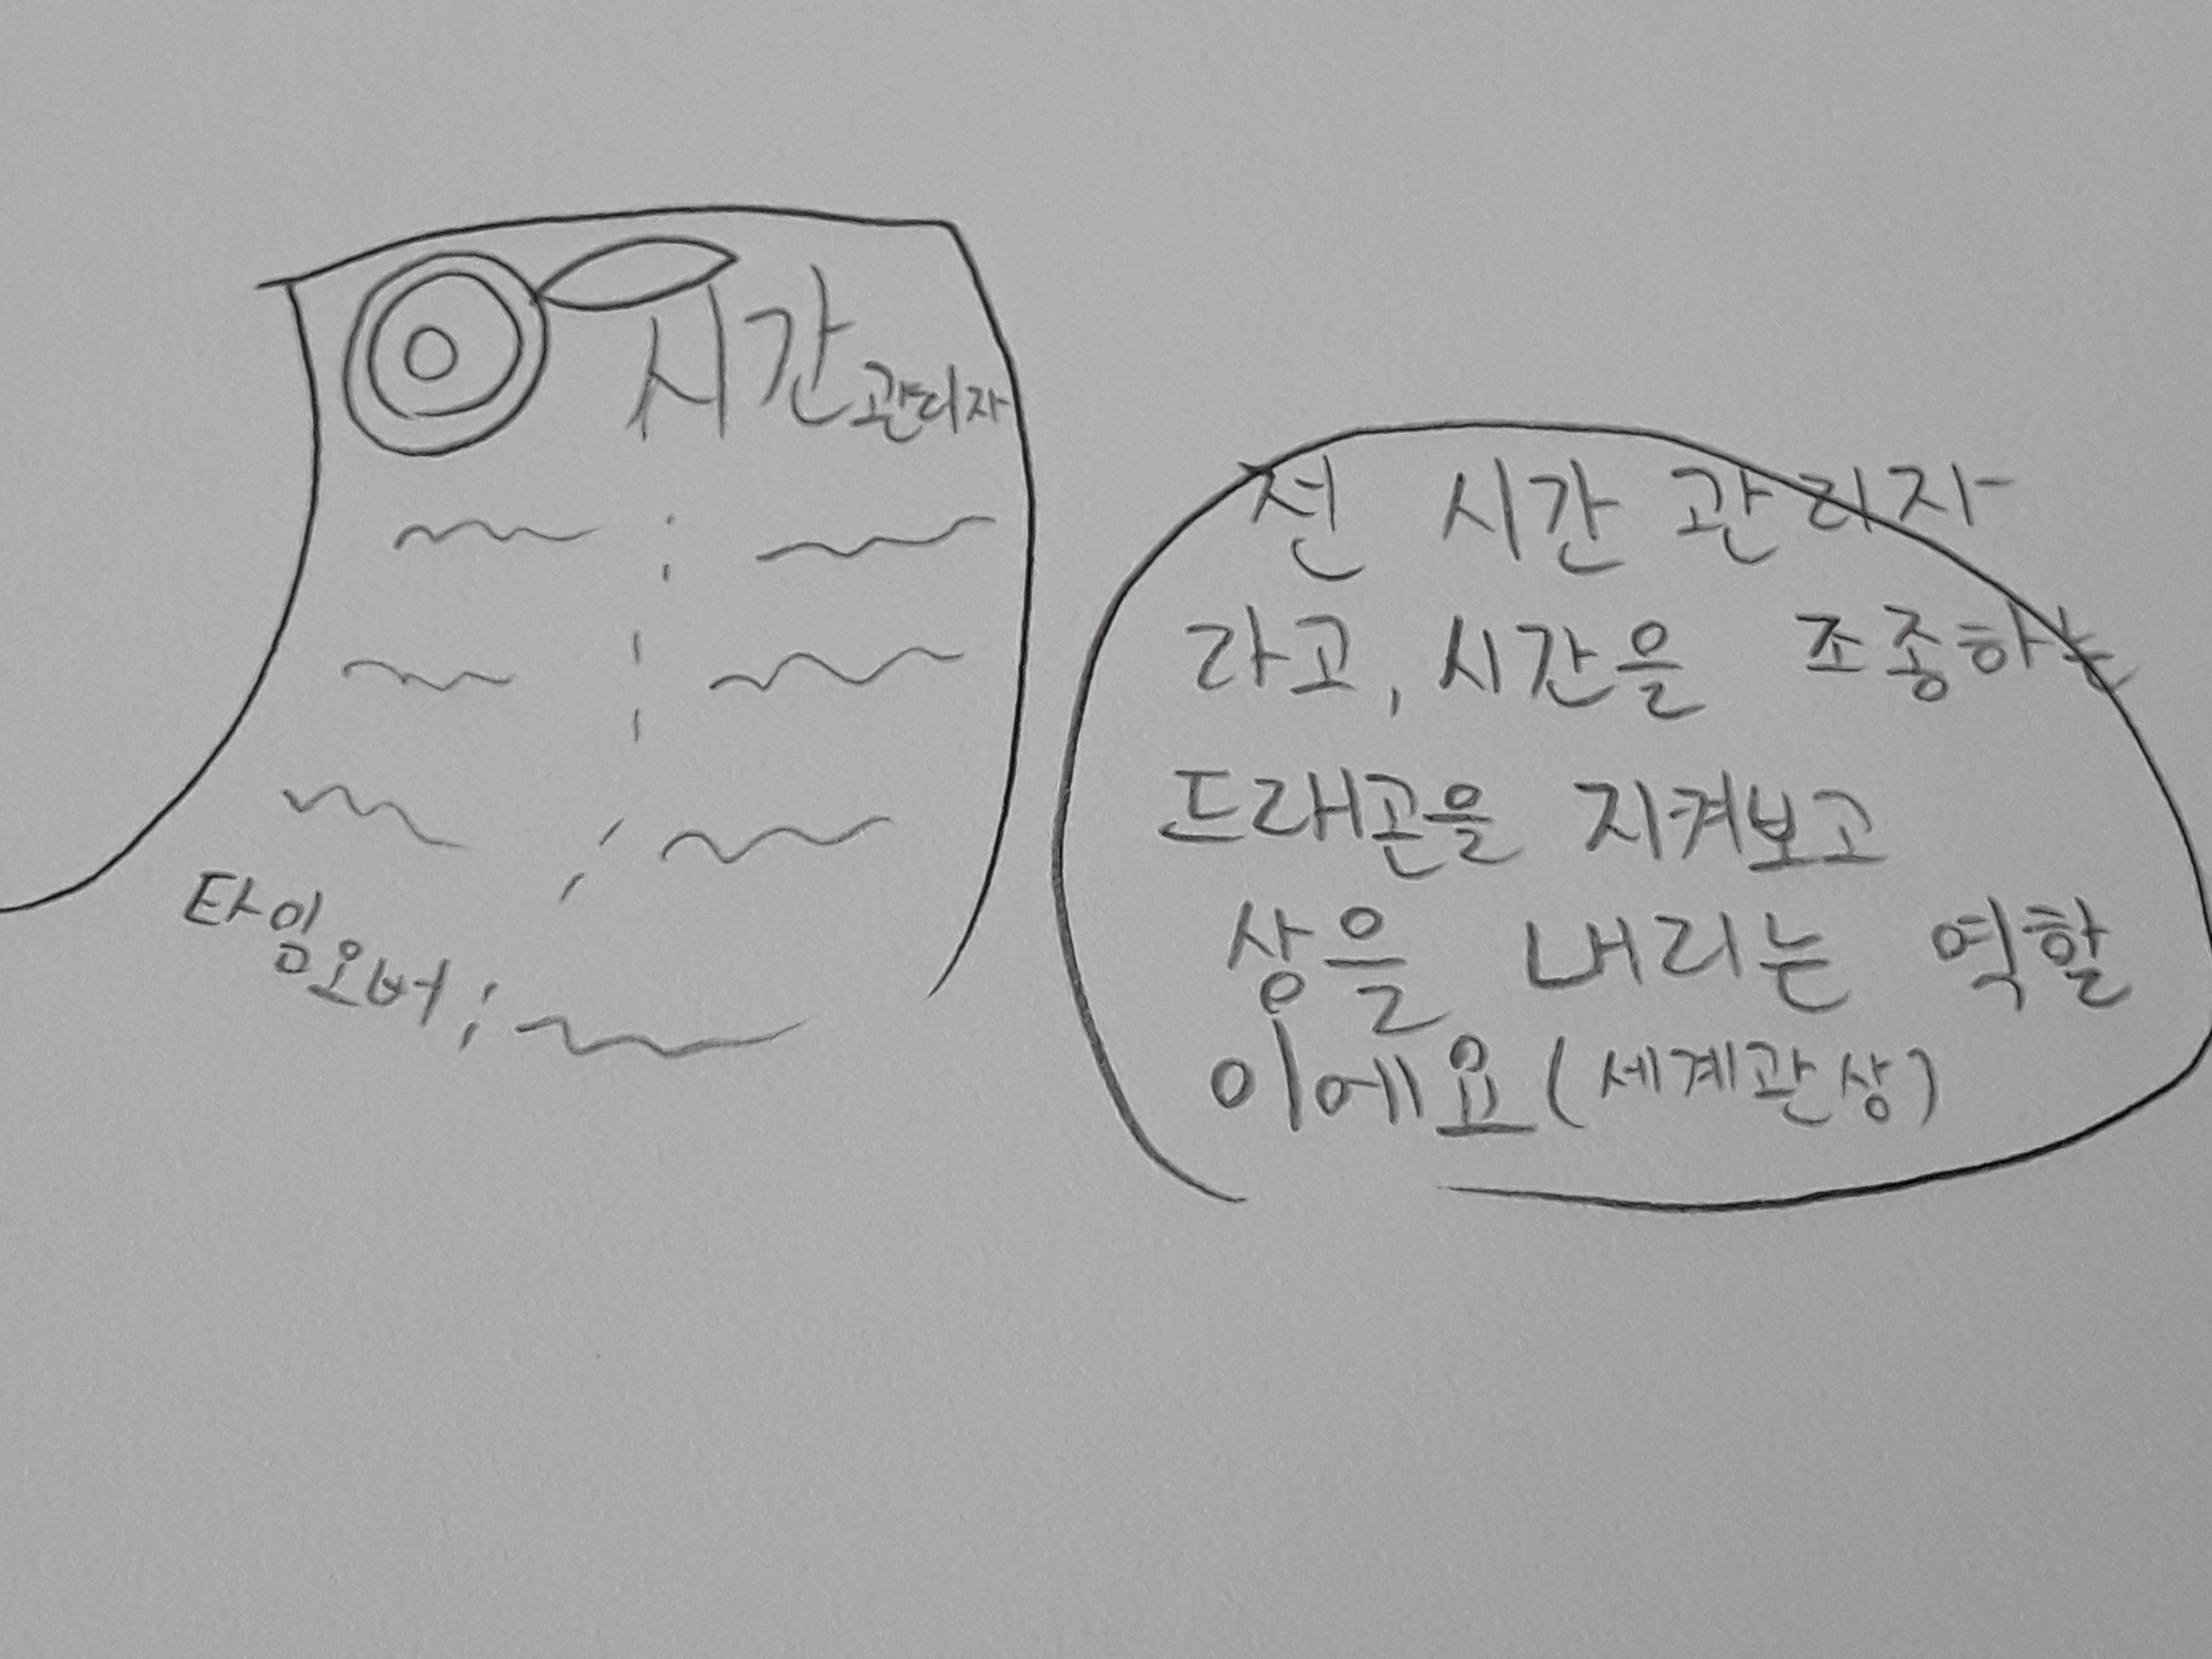 시간 관리자
타임오버 :
전 시간 관리자
라고, 시간을 조종하는
드래곤을 지켜보고
상을 내리는 역할
이에요 (세계관상)